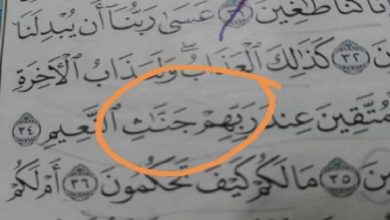 كُنَّا طَٰغِينَ ٣١ عَسَىٰ رَبُّنَا أَن يُبْدِلَنَا
٣٢ كَذَٰلِكَ ٱلْعَذَابُ ۖ وَلَعَذَابُ ٱلْءَاخِرَةِ
لِلْمُتَّقِينَ عِندَ رَبِّهِمْ جَنَّٰتِ ٱلنَّعِيمِ ٣٤
٣٥ مَا لَكُمْ كَيْفَ تَحْكُمُونَ ٣٦ أَمْ لَكُمْ